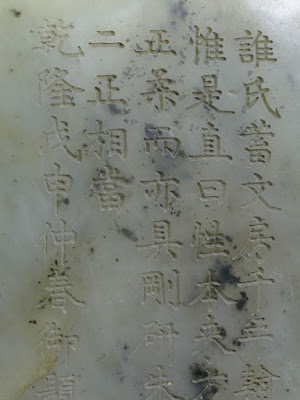 誰氏蓄文房千年翰
惟是直曰性本來方
正柔而亦具剛研朱
二正相當
乾隆戊申仲春御題